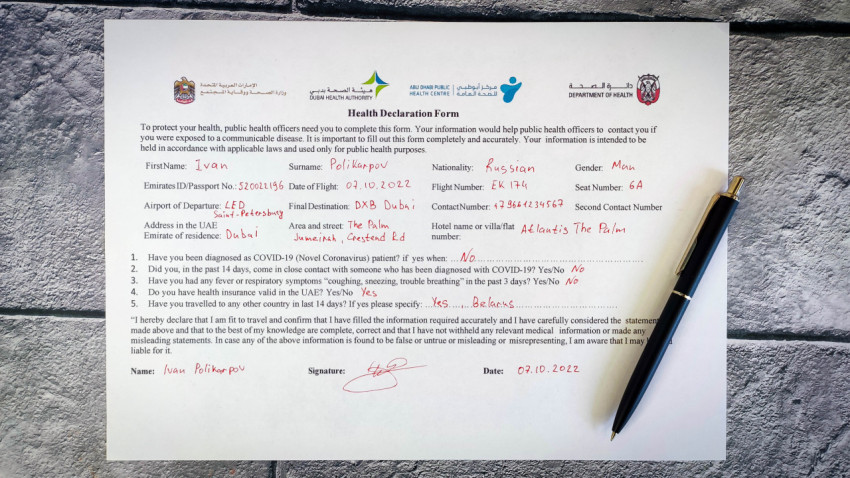 الإمارات العربية المتحدة
وزارة الصحة ووقاية المجتمع
هيئة الصحة بدبي
DUBAI HEALTH AUTHORITY
ABU DHABI PUBLIC HEALTH CENTRE
مركز أبوظبي للصحة العامة
دائرة الصحة
DEPARTMENT OF HEALTH
Health Declaration Form
To protect your health, public health officers need you to complete this form. Your information would help public health officers to contact you if
you were exposed to a communicable disease. It is important to fill out this form completely and accurately. Your information is intended to be
held in accordance with applicable laws and used only for public health purposes.
FirstName: Ivan Surname: Polikarpov Nationality: Russian Gender: Man
Emirates ID/Passport No.: 520022196 Date of Flight: 07.10.2022 Flight Number: EK 174 Seat Number: 6A
Airport of Departure: LED Saint-Petersburg Final Destination: DXB Dubai ContactNumber: +79661234567 Second Contact Number
Address in the UAE Area and street: The Palm Hotel name or villa/flat Atlantis The Palm
Emirate of residence: Dubai Jumeirah, Crestend Rd number:
1. Have you been diagnosed as COVID-19 (Novel Coronavirus) patient? if yes when: ...No...
2. Did you, in the past 14 days, come in close contact with someone who has been diagnosed with COVID-19? Yes/No No
3. Have you had any fever or respiratory symptoms “coughing, sneezing, trouble breathing” in the past 3 days? Yes/No No
4. Do you have health insurance valid in the UAE? Yes/No Yes
5. Have you travelled to any other country in last 14 days? If yes please specify: ...Yes...Belarus...
“I hereby declare that I am fit to travel and confirm that I have filled the information required accurately and I have carefully considered the statement
made above and that to the best of my knowledge are complete, correct and that I have not withheld any relevant medical information or made any
misleading statements. In case any of the above information is found to be false or untrue or misleading or misrepresenting, I am aware that I may
liable for it.
Name: Ivan Polikarpov Signature: Date: 07.10.2022